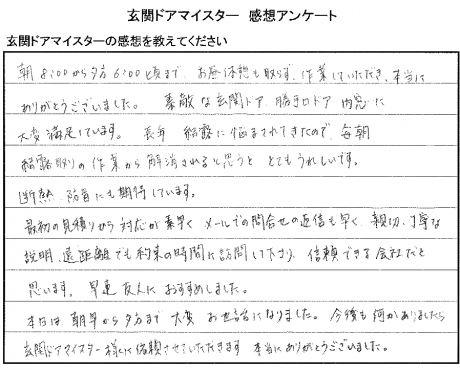 玄関ドアマイスター 感想アンケート
玄関ドアマイスターの感想を教えてください
朝 8:00から夕方 6:00頃まで、お昼休憩も取らず、作業していただき、本当に
ありがとうございました。 素敵な玄関ドア、勝手口ドア 内窓に
大変満足しています。 長年 結露に悩まされてきたので、毎朝
結露取りの作業から解消されると思うと とてもうれしいです。
断熱、防音にも期待しています。
最初の見積りから対応が素早く メールでの問合せの返信も早く、親切、丁寧な
説明、遠距離でも約束の時間に訪問して下さり、信頼できる会社だと
思います。 早速友人におすすめしました。
本日は 朝早から夕方まで 大変 お世話になりました。今後も何かありましたら
玄関ドアマイスター様に依頼させていただきます 本当にありがとうございました。